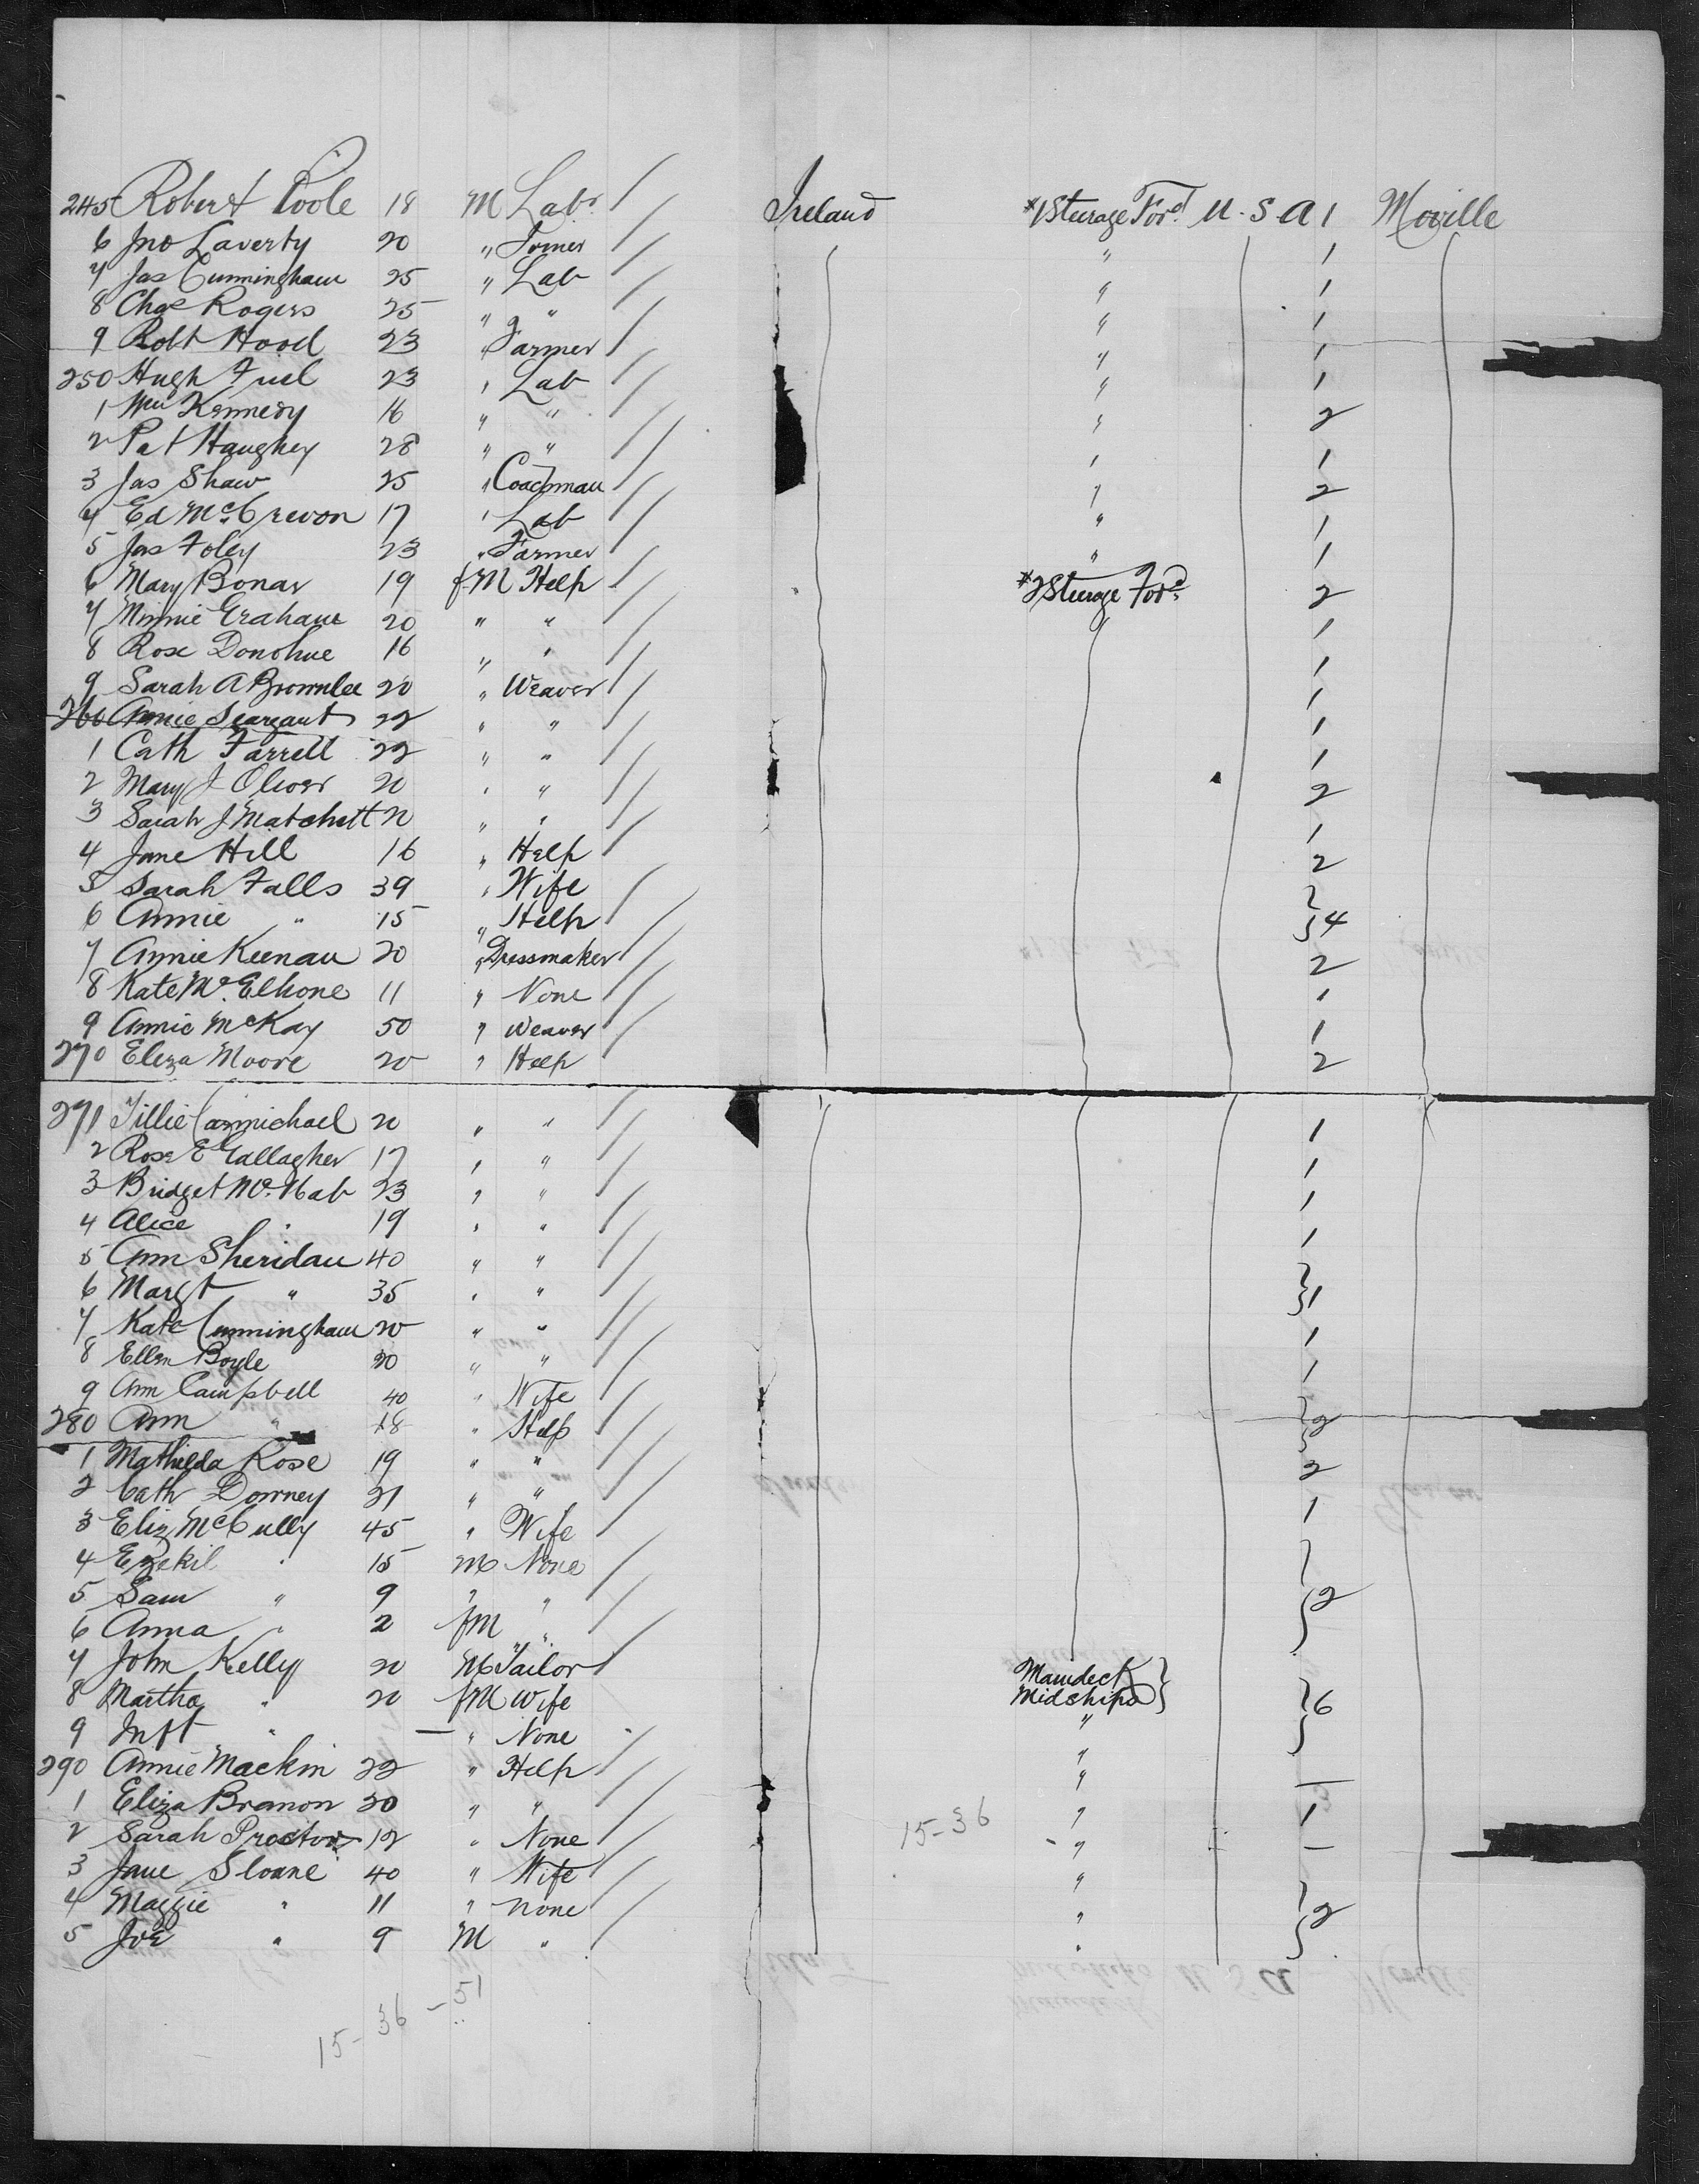 245 Robert Poole 18 M Labr Ireland *1 Steerage Ford U.S.A 1 Moville
6 Jno Laverty 20 " Joiner " 1
7 Jas Cunningham 25 " Lab " 1
8 Chas Rogers 25 " " " 1
9 Robt Hood 23 " Farmer " 1
250 Hugh Friel 23 " Lab " 1
1 Wm Kennedy 16 " " " 2
2 Pat Haughey 28 " " " 1
3 Jas Shaw 25 " Coachman " 2
4 Ed McCrevon 17 " Lab " 1
5 Jas Foley 23 " Farmer " 1
6 Mary Bonar 19 fM Help *2 Steerage Ford 2
7 Minnie Graham 20 " " 1
8 Rose Donohue 16 " " 1
9 Sarah A Brownlee 20 " Weaver 1
260 Annie Seargant 22 " " 1
1 Cath Farrell 22 " " 1
2 Mary J Oliver 20 " " 2
3 Sarah J Matchett 20 " " 1
4 Jane Hill 16 " Help 2
5 Sarah Falls 39 " Wife
6 Annie " 15 " Help } 4
7 Annie Keenan 20 " Dressmaker 2
8 Kate McElhone 11 " None 1
9 Annie McKay 50 " Weaver 1
270 Eliza Moore 20 " Help 2
271 Tillie Carmichael 20 " " 1
2 Rose E Gallagher 17 " " 1
3 Bridget McNab 23 " " 1
4 Alice " 19 " " 1
5 Ann Sheridan 40 " "
6 Margt " 35 " " } 1
7 Kate Cunningham 20 " " 1
8 Ellen Boyle 20 " " 1
9 Ann Campbell 40 " Wife
280 Ann " 18 " Help } 2
1 Mathilda Rose 19 " " 2
2 Cath Downey 21 " " 1
3 Eliz McCully 45 " Wife
4 Ezekil " 15 M None
5 Sam " 9 " " } 2
6 Anna " 2 fM "
7 John Kelly 20 M Tailor Maindeck
8 Martha " 20 fM Wife Midships } } 6
9 Inft " — " None "
290 Annie Mackin 22 " Help " —
1 Eliza Branon 30 " " " 1
2 Sarah Proctor 12 " None " —
3 Jane Sloane 40 " Wife "
4 Maggie " 11 " none " } 2
5 Joe " 9 M " "
15-36
15-36-51